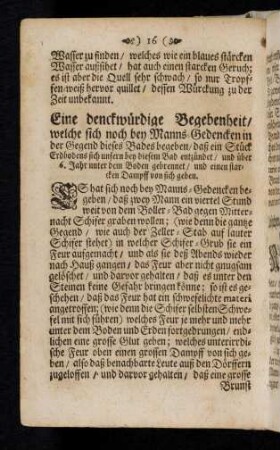 ☙) 16 (❧
Wasser zu finden / welches wie ein blaues stärcken
Wasser aussihet / hat auch einen starcken Geruch;
es ist aber die Quell sehr schwach / so nur Tropf-
fen-weiß hervor quillet / dessen Würckung zu der
Zeit unbekannt.
Eine denckwürdige Begebenheit /
welche sich noch bey Manns-Gedencken in
der Gegend dieses Bades begeben / daß ein Stück
Erdbodens sich unfern bey diesem Bad entzündet / und über
6. Jahr unter dem Boden gebrennet / und einen star-
cken Dampff von sich geben.
ES hat sich noch bey Manns-Gedencken be-
geben / daß zwey Mann ein viertel Stund
weit von dem Boller-Bad gegen Mitter-
nacht Schifer graben wollen; (wie denn die gantze
Gegend / wie auch der Zeller-Stab auf lauter
Schifer stehet) in welcher Schifer-Grub sie ein
Feur aufgemacht / und als sie deß Abends wieder
nach Hauß gangen / das Feur aber nicht gnugsam
gelöschet / und darvor gehalten / daß es unter den
Steinen keine Gefahr bringen könne; so ist es ge-
schehen / daß das Feur hat ein schwefelichte materi
angetroffen; (wie denn die Schifer selbsten Schwe-
fel mit sich führen) welches Feur je mehr und mehr
unter dem Boden und Erden fortgedrungen / end-
lichen eine grosse Glut geben; welches unterirrdi-
sche Feur oben einen grossen Dampff von sich ge-
ben / also daß benachbarte Leute auß den Dörffern
zugeloffen / und darvor gehalten / daß eine grosse
Brunst